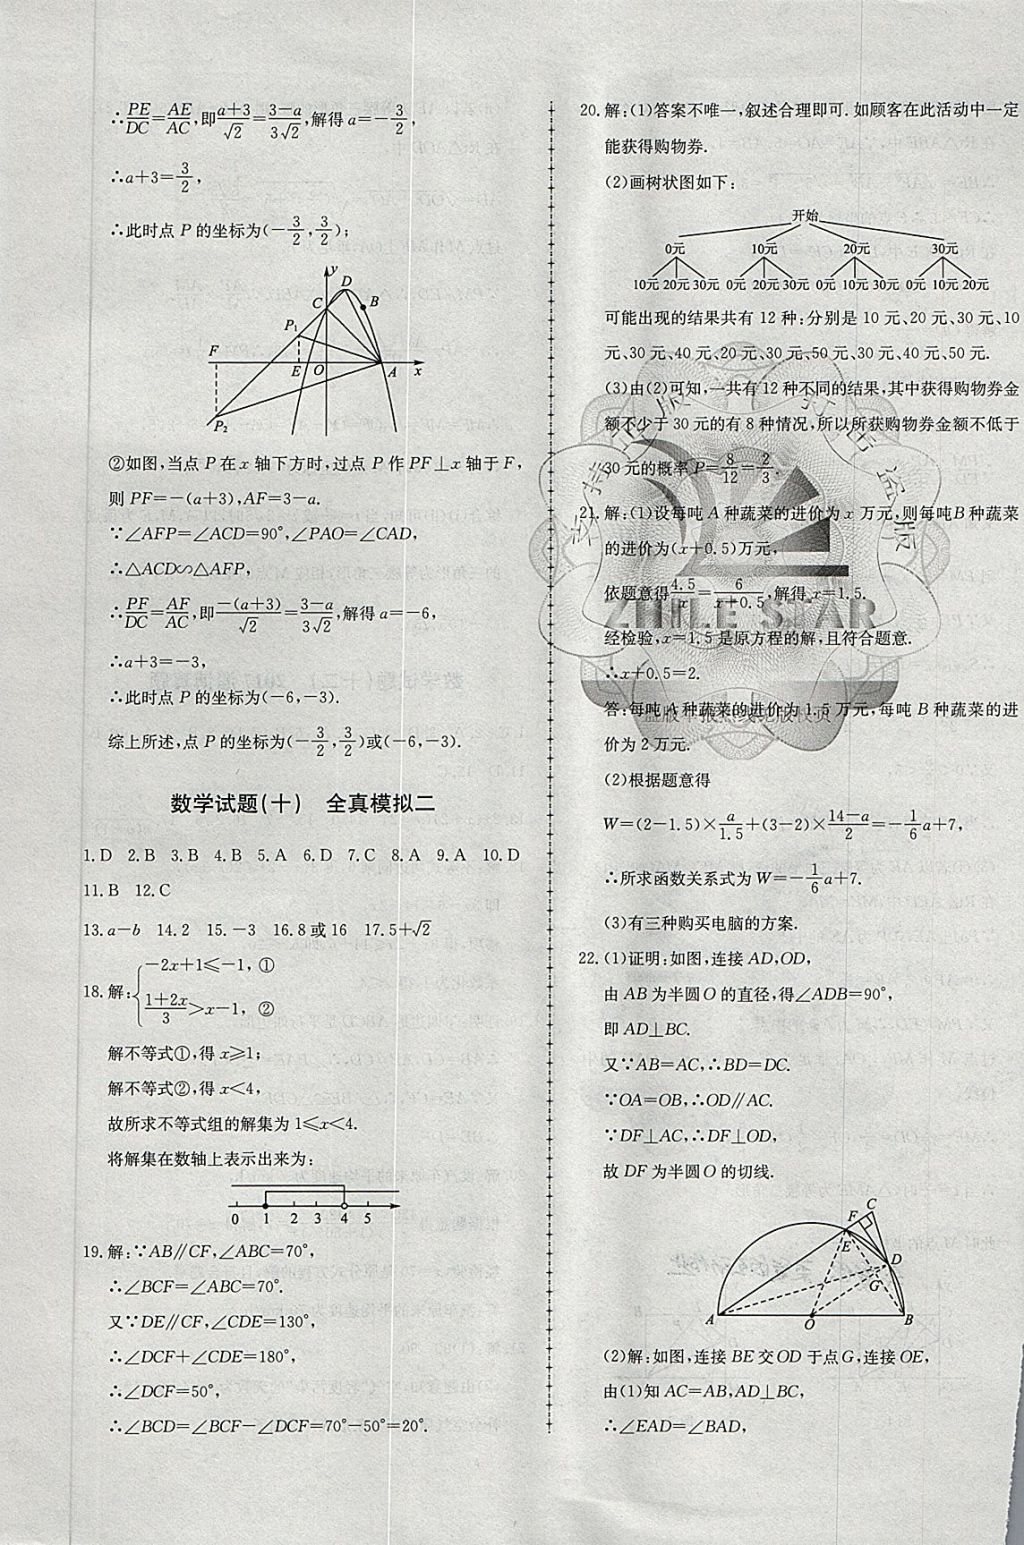 ∴PE/DC=AE/AC,即(a+3)/√2=(3-a)/(3√2),解得a=-3/2,
∴a+3=3/2,
∴此时点P的坐标为(-3/2,3/2);
y
D
C
B
P₁
F
E
O
A
x
P₂
②如图,当点P在x轴下方时,过点P作PF⊥x轴于F,
则PF=-(a+3),AF=3-a.
∵∠AFP=∠ACD=90°,∠PAO=∠CAD,
∴△ACD∽△AFP,
∴PF/DC=AF/AC,即-(a+3)/√2=(3-a)/(3√2),解得a=-6,
∴a+3=-3,
∴此时点P的坐标为(-6,-3).
综上所述,点P的坐标为(-3/2,3/2)或(-6,-3).
数学试题(十) 全真模拟二
1.D 2.B 3.B 4.B 5.A 6.D 7.C 8.A 9.A 10.D
11.B 12.C
13.a-b 14.2 15.-3 16.8或16 17.5+√2
18.解:{-2x+1≤-1,①
(1+2x)/3>x-1,②
解不等式①,得x≥1;
解不等式②,得x<4,
故所求不等式组的解集为1≤x<4.
将解集在数轴上表示出来为:
0 1 2 3 4 5
19.解:∵AB∥CF,∠ABC=70°,
∴∠BCF=∠ABC=70°.
又∵DE∥CF,∠CDE=130°,
∴∠DCF+∠CDE=180°,
∴∠DCF=50°,
∴∠BCD=∠BCF-∠DCF=70°-50°=20°.
20.解:(1)答案不唯一,叙述合理即可.如顾客在此活动中一定
能获得购物券.
(2)画树状图如下:
开始
0元 10元 20元 30元
10元 20元 30元 0元 20元 30元 0元 10元 30元 0元 10元 20元
可能出现的结果共有12种:分别是10元、20元、30元、10
元、30元、40元、20元、30元、50元、30元、40元、50元.
(3)由(2)可知,一共有12种不同的结果,其中获得购物券金
额不少于30元的有8种情况,所以所获购物券金额不低于
30元的概率P=8/12=2/3.
21.解:(1)设每吨A种蔬菜的进价为x万元,则每吨B种蔬菜
的进价为(x+0.5)万元,
依题意得4.5/x=6/(x+0.5),解得x=1.5.
ZHILE STAR
经检验,x=1.5是原方程的解,且符合题意.
∴x+0.5=2.
答:每吨A种蔬菜的进价为1.5万元,每吨B种蔬菜的进
价为2万元.
(2)根据题意得
W=(2-1.5)×a/1.5+(3-2)×(14-a)/2=-1/6a+7,
∴所求函数关系式为W=-1/6a+7.
(3)有三种购买电脑的方案.
22.(1)证明:如图,连接AD,OD,
由AB为半圆O的直径,得∠ADB=90°,
即AD⊥BC.
又∵AB=AC,∴BD=DC.
∵OA=OB,∴OD∥AC.
∵DF⊥AC,∴DF⊥OD,
故DF为半圆O的切线.
C
F
E
D
G
A
O
B
(2)解:如图,连接BE交OD于点G,连接OE,
由(1)知AC=AB,AD⊥BC,
∴∠EAD=∠BAD,